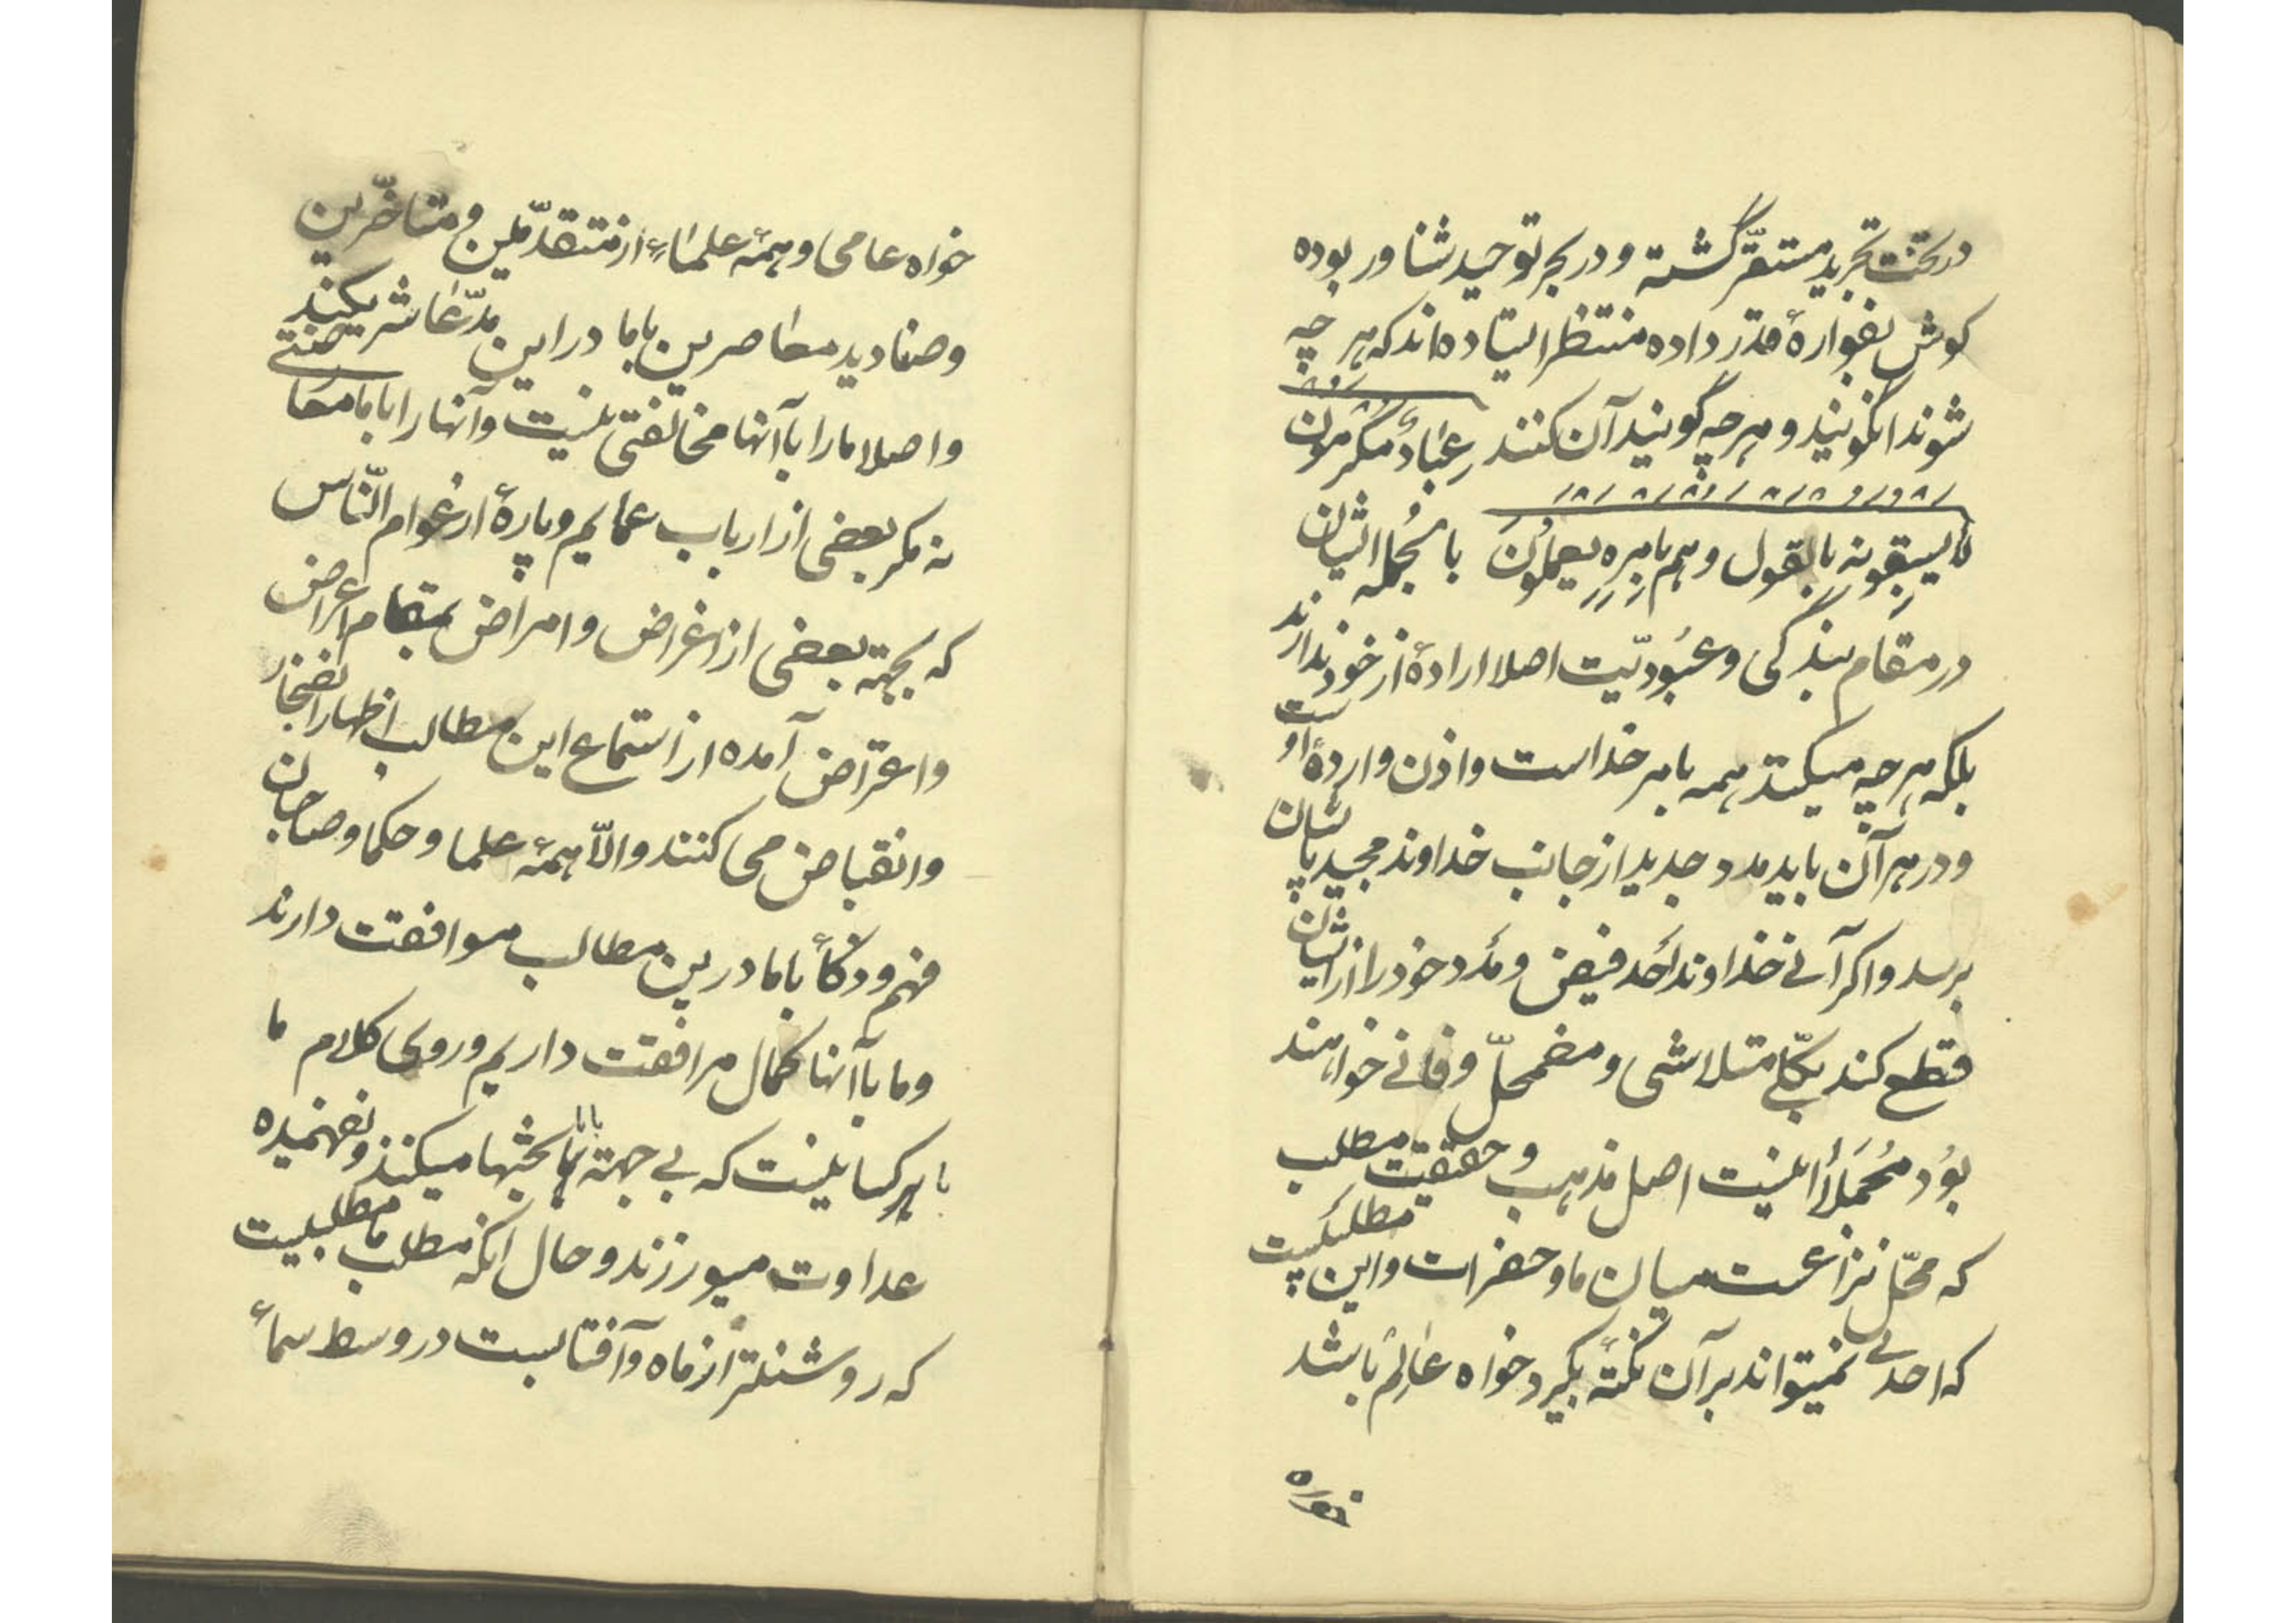 در تخت تجرید مستقرّ گشته و در بحر توحید شناور بوده
کوش بفوارهٔ قدر داده منتظر ایستاده‌اند که هر چه
شوند انکویند و هر چه گویند آن کنند عِبٰادٌ مُکْرَمُون
لا یسبقونه بالقول و هم بامره یعملون بالجمله ایشان
در مقام بندگی و عبُودیّت اصلا ارادهٔ از خود ندارند
بلکه هر چه میکنند همه بامر خداست و اذن و ارادهٔ اوست
و در هر آن باید مدد جدید از جانب خداوند مجید بایشان
برسد و اکر آنی خداوند اَحد فیض و مَدد خود را از ایشان
قطع کند بکلّی متلاشی و مضمحلّ و فانی خواهند
بوُد مُجمَلاً اینست اصل مذهب و حقیقت مطلب
که محلّ نزاعست میان ما و حضرات و این مطلبیست
که احدی نمیتواند بر آن نکتهٔ بگیرد خواه عٰالِم باشد
خواه
خواه عامی و همهٔ علماءِ از متقدّمین و متاخّرین
و صنادید معاصرین با ما در این مدّعا شریکند
و اصلا ما را با آنها مخالفتی نیست و آنها را با ما معاصنتی
نه مکر بعضی از ارباب عمایم و پارهٔ از عوام النّاس
که بجهته بعضی از اغراض و امراض بمقام اعراض
و اعتراض آمده از استماع این مطالب اظهار انضجار
و انقباض می کنند والّا همهٔ علما و حکما و صاحبان
فهم و ذکأ با ما درین مطالب موافقت دارند
و ما با آنها کمال مرافقت داریم و روی کلام ما
با کسانیست که بی جهته با ما بحثها میکنند و نفهمیده
عداوت میورزند و حال انکه مطلب ما مطلبیست
که روشنتر از ماه و آفتابست در وسط سمأ